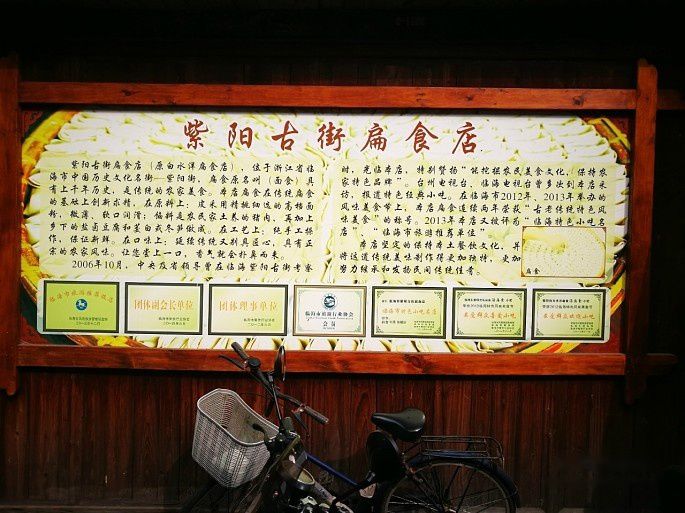 紫阳古街扁食店
紫阳古街扁食店（原白水洋扁食店），位于浙江省临
海市中国历史文化名街——紫阳街，扁食原名州（面食）具
有上千年历史，是传统的农家美食。本店扁食在传统扁食
的基础上创新求精，在原料上：皮采用精挑细选的高档面
粉，嫩薄、软口润滑；馅料是农民家土养的猪肉，再加上
乡下的盐卤豆腐和茭白或冬笋做成。在工艺上：纯手工操
作，保证新鲜。在口味上：延续传统又别具匠心，具有正
宗的农家风味。让您尝上一口，香气就会扑鼻而来。
2006年10月，中央及省领导曾在临海紫阳古街考察
时，光临本店，特别赞扬“能挖掘农民美食文化，保持农
家特色品牌”。台州电视台、临海电视台曾多次到本店采
访，报道特色经典小吃。在临海市2012年、2013年举办的
风味美食节上，本店扁食连续两年荣获“古老传统特色风
味美食”的称号。2013年本店又被评为“临海特色小吃名
店”、“临海市旅游推荐单位”。
本店坚定的保持本土餐饮文化，并
将这道传统美味制作得更加独特，更加
努力继承和发扬民间传统佳肴。
扁食
临海市旅游推荐商店
团体副会长单位
团体理事单位
临海市旅游行业协会
会员
临海市特色小吃名店
最受群众喜爱小吃
最受群众欢迎小吃